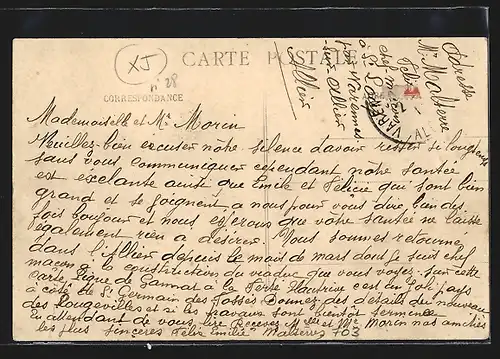 XJ
n° 28
CARTE POSTALE
CORRESPONDANCE
Allier
Adresse
Mr Malterre
Felix
chef maçon
à St Loup
par Varennes
sur allier
VARENNES
AL
Mademoiselle et Mr Morin
Veuillez bien excuser notre silence d'avoir rester si longtemps
sans vous communiquer cependant notre santée
est exelante ainsie que Emile et Felicie qui sont bien
grand et se joignent a nous pour vous dire bien des
fois bonjour et nous esperons que vôtre santée ne laisse
également rien a désirer. Nous sommes retourne
dans l'Allier depuis le mois de mars dont je suis chef
maçon à la constrution du viaduc que vous voyez sur cette
carte ligne de Gannat à La Ferté Hauterive c'est un Joli pays
à côté de St Germain des Fossés Donnez des details du nouveau
des Longevilles et si les travaux sont bientôt terminée
En attendant de vous lire Recevez Mlle et Mr Morin nos amitiés
les plus sincères Felix Emilie Malterres 703